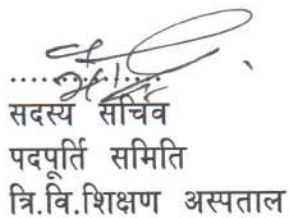 ...............
सदस्य सचिव
पदपूर्ति समिति
त्रि.वि.शिक्षण अस्पताल